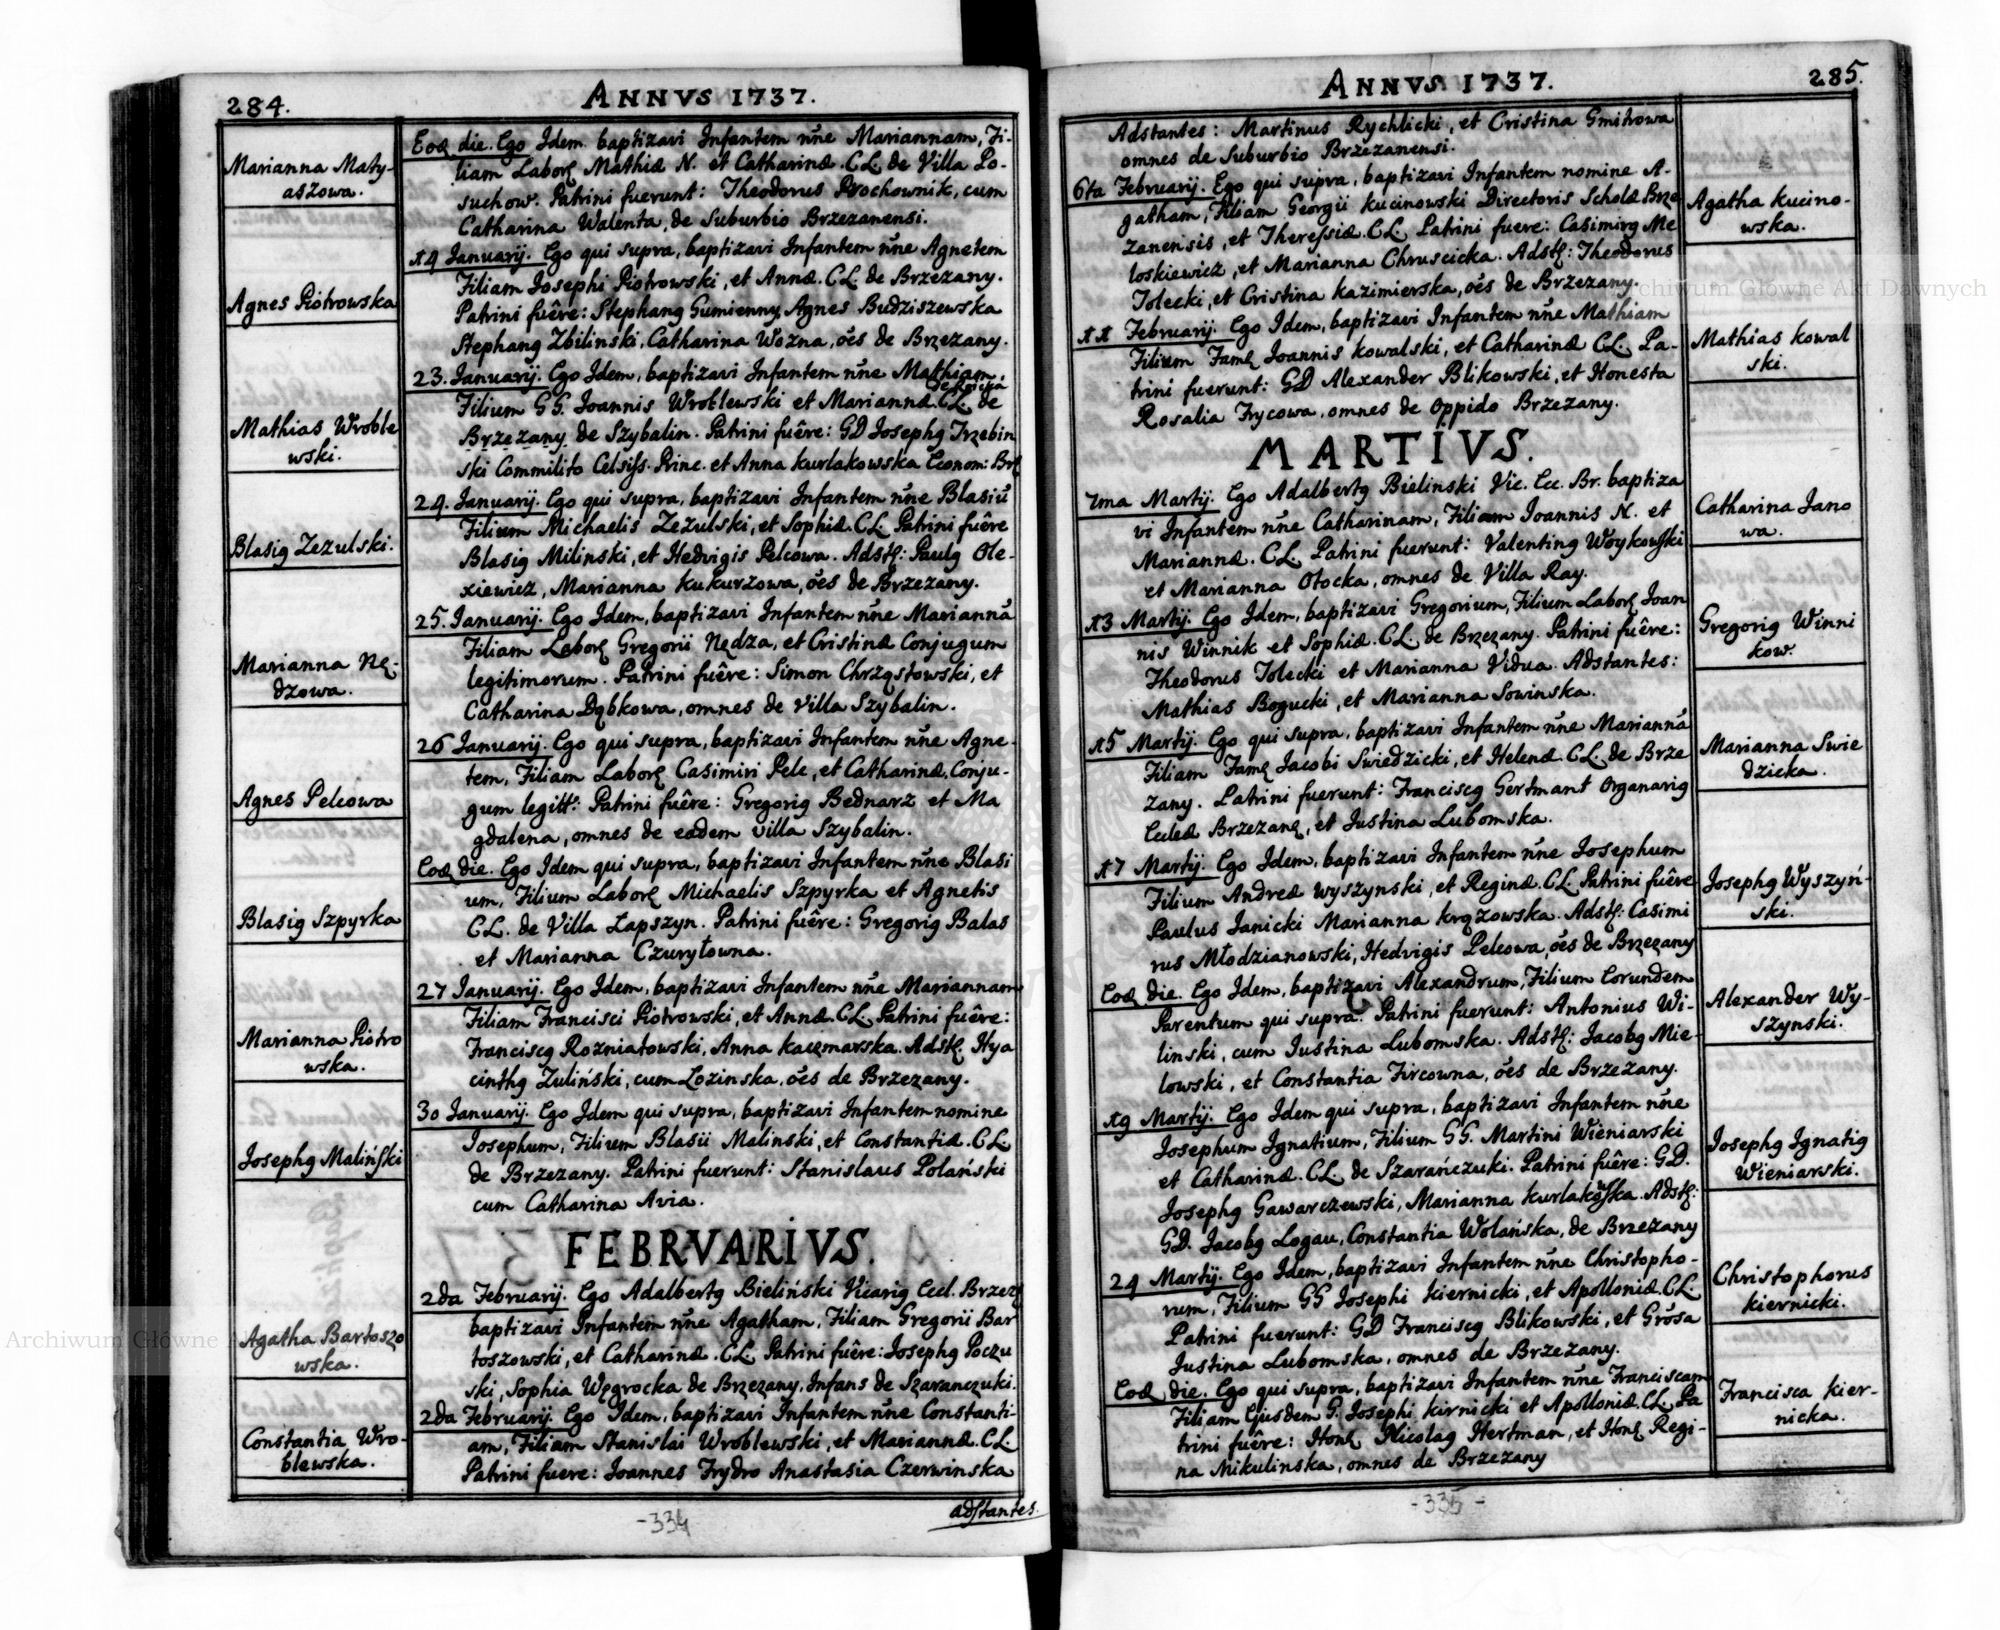 284.
ANNVS 1737.
Marianna Maty-
aszowa.
Agnes Piotrowska
Mathias Wroble
wski.
Blasig Zezulski.
Marianna Nę-
dzowa.
Agnes Pelcowa
Blasig Szpyrka
Marianna Piotro
wska.
Josephg Maliński
Agatha Bartoszo
wska.
Constantia Wro-
blewska.
Eod die. Ego Idem baptizavi Infantem nñe Mariannam, Fi-
liam Labor Mathiæ N. et Catharinæ. CL. de Villa Po-
suchow. Patrini fuerunt: Theodorus Prochownik, cum
Catharina Walenta, de Suburbio Brzezanensi.
19 Januarij. Ego qui supra, baptizavi Infantem nñe Agnetem
Filiam Josephi Piotrowski, et Annæ. CL. de Brzezany.
Patrini fuêre: Stephang Gumienny, Agnes Budziszewska
Stephang Zbilinski, Catharina Wozna, oẽs de Brzezany.
23. Januarij. Ego Idem, baptizavi Infantem nñe Mathiam.
Filium GG. Joannis Wroblewski et Mariannæ. CL. de
Brzezany de Szybalin. Patrini fuêre: GD Josephg Trzebin
ski Commilito Celsiss. Princ. et Anna Kurlakowska Econom: Brz
24. Januarij. Ego qui supra, baptizavi Infantem nñe Blasiũ
Filium Michaelis Zezulski, et Sophiæ. CL. Patrini fuêre
Blasig Milinski, et Hedvigis Pelcowa. Adst: Paulg Ole-
xiewicz, Marianna Kukurzowa, oẽs de Brzezany.
25. Januarij. Ego Idem, baptizavi Infantem nñe Mariannã
Filiam Labor Gregorii Nędza, et Cristinæ Conjugum
legitimorum. Patrini fuêre: Simon Chrząstowski, et
Catharina Dąbkowa, omnes de Villa Szybalin.
26 Januarij. Ego qui supra, baptizavi Infantem nñe Agne-
tem, Filiam Labor Casimiri Pele, et Catharinæ, Conju-
gum legitt: Patrini fuêre: Gregorig Bednarz et Ma
gdalena, omnes de eadem villa Szybalin.
Eod die. Ego Idem qui supra, baptizavi Infantem nñe Blasi
um, Filium Labor Michaelis Szpyrka et Agnetis
CL. de Villa Łapszyn. Patrini fuêre: Gregorig Balas
et Marianna Czuryłowna.
27 Januarij. Ego Idem, baptizavi Infantem nñe Mariannam
Filiam Francisci Piotrowski, et Annæ. CL. Patrini fuêre:
Franciscg Rozniatowski, Anna Kaczmarska. Adst. Hya
cinthg Zuliński, cum Lozinska, oẽs de Brzezany.
30 Januarij. Ego Idem qui supra, baptizavi Infantem nomine
Josephum, Filium Blasii Malinski, et Constantiæ. CL.
de Brzezany. Patrini fuerunt: Stanislaus Polański
cum Catharina Avia.
FEBRVARIVS.
2da Februarij. Ego Adalbertg Bieliński Vicarig Eccl. Brzez
baptizavi Infantem nñe Agatham, Filiam Gregorii Bar
toszowski, et Catharinæ. CL. Patrini fuêre: Josephg Poczu
ski, Sophia Węgrocka de Brzezany. Infans de Szaranczuki.
2da Februarij. Ego Idem, baptizavi Infantem nñe Constanti-
am, Filiam Stanislai Wroblewski, et Mariannæ. CL.
Patrini fuere: Joannes Frydro Anastasia Czerwinska
adstantes.
-334
ANNVS 1737.
285.
Adstantes: Martinus Rychlicki, et Cristina Gmitrowa
omnes de Suburbio Brzezanensi.
6ta Februarij. Ego qui supra, baptizavi Infantem nomine A-
gatham, Filiam Georgii Kucinowski Directoris Scholæ Brze
zanensis, et Theressiæ. CL. Patrini fuere: Casimirg Me
loskiewicz, et Marianna Chruscicka. Adst: Theodorus
Tolecki, et Cristina Kazimierska, oẽs de Brzezany.
11 Februarij. Ego Idem, baptizavi Infantem nñe Mathiam
Filium Fam Joannis Kowalski, et Catharinæ CL. Pa-
trini fuerunt: GD Alexander Blikowski, et Honesta
Rosalia Frycowa, omnes de Oppido Brzezany.
MARTIVS.
7ma Martij. Ego Adalbertg Bielinski Vic. Ec. Br. baptiza
vi Infantem nñe Catharinam, Filiam Joannis N. et
Mariannæ. CL. Patrini fuerunt: Valenting Woykowski
et Marianna Otocka, omnes de Villa Ray.
13 Martij. Ego Idem, baptizavi Gregorium, Filium Labor Joan
nis Winnik et Sophiæ. CL. de Brzezany. Patrini fuêre:
Theodorus Tolecki et Marianna Vidua. Adstantes:
Mathias Bogucki, et Marianna Sowinska.
15 Martij. Ego qui supra, baptizavi Infantem nñe Mariannã
Filiam Fam Jacobi Swiedzicki, et Helenæ. CL. de Brze
zany. Patrini fuerunt: Franciscg Gertmant Organarig
Eccleæ Brzezan, et Justina Lubomska.
17 Martij. Ego Idem, baptizavi Infantem nñe Josephum
Filium Andreæ Wyszynski, et Reginæ. CL. Patrini fuêre
Paulus Janicki Marianna Krązowska. Adst: Casimi
rus Młodzianowski, Hedvigis Pelcowa, oẽs de Brzezany
Eod die. Ego Idem, baptizavi Alexandrum, Filium Eorundem
Parentum qui supra. Patrini fuerunt: Antonius Wi-
linski, cum Justina Lubomska. Adst: Jacobg Mie-
lowski, et Constantia Fircowna, oẽs de Brzezany.
19 Martij. Ego Idem qui supra, baptizavi Infantem nñe
Josephum Ignatium, Filium GG. Martini Wieniarski
et Catharinæ. CL. de Szarańczuki. Patrini fuêre: G.D.
Josephg Gawarczewski, Marianna Kurlakowska. Adst:
GD. Jacobg Logau, Constantia Wolańska, de Brzezany
24 Martij. Ego Idem, baptizavi Infantem nñe Christopho-
rum, Filium GG Josephi Kiernicki, et Apolloniæ. CL
Patrini fuerunt: GD Franciscg Blikowski, et Grosa
Justina Lubomska, omnes de Brzezany.
Eod die. Ego qui supra, baptizavi Infantem nñe Franciscam
Filiam Ejusdem G. Josephi Kirnicki et Apolloniæ. CL. Pa
trini fuêre: Hon Nicolag Hertman, et Hon Regi-
na Mikulinska, omnes de Brzezany
Agatha Kucino-
wska.
Mathias Kowal
ski.
Catharina Jano
wa.
Gregorig Winni
kow.
Marianna Swie
dzicka.
Josephg Wyszyń-
ski.
Alexander Wy-
szynski.
Josephg Ignatig
Wieniarski.
Christophorus
Kiernicki.
Francisca Kier-
nicka.
-335-
Archiwum Główne Akt Dawnych